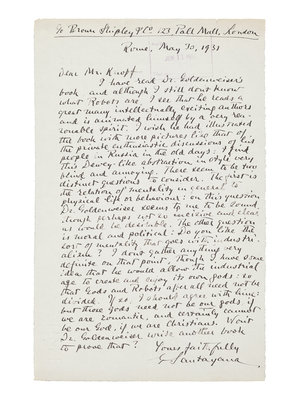 c/o Brown Shipley & Co. 123 Pall Mall, London
Rome, May 30, 1931
Dear Mr. Knopf
I have read Dr. Goldenweiser's
book and although I still don't know
what Robots are, I see that he reads a
great many intellectually exciting authors
and is animated himself by a very rea-
sonable spirit. I wish he had illustrated
the book with more pictures like that of
the private enthusiastic discussions of his
people in Russia in the old days: I find
this Dewey-like abstraction in style very
blind and annoying. There seem to be two
distinct questions to consider. The first is
the relation of mentality in general to
physical life or behaviour: on this question
Dr. Goldenweiser seems to me to be sound,
though perhaps not so incisive and clear
as would be desirable. The other question
is moral and political: Do you like the
sort of mentality that goes with industri-
alism? I don't gather anything very
definite on that point, though I have some
idea that he would allow the industrial
age to create and enjoy its own gods: so
that Gods and Robots after all need not be
divided. If so, I should agree with him:
but those Gods need not be our gods if
we are romantic, and certainly cannot
be our God, if we are Christians. Won't
Dr. Goldenweiser write another book
to prove that?
Yours faithfully
G Santayana